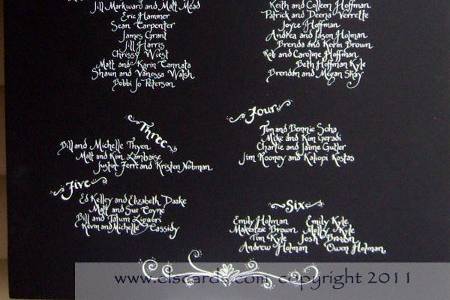 Jill Markward and Matt Mead
Eric Hammer
Sean Carpenter
James Grant
Jill Harris
Chrissy Wiest
Matt and Karin Cannata
Shaun and Vanessa Walsh
Bobbi Jo Peterson
Keith and Colleen Hoffman
Patrick and Deena Verrette
Joyce Hoffman
Andrea and Jason Holman
Brenda and Kevin Brown
Rob and Caroline Hoffman
Beth Hoffman Kyle
Brendan and Megan Skay
Three
Bill and Michelle Thyen
Matt and Kim Lambiase
Justin Ferri and Kristen Notman
Four
Tom and Bonnie Soha
Mike and Kim Geradi
Charlie and Jaime Cutler
Jim Rooney and Kaliopi Kostas
Five
Ed Kelley and Elizabeth Daake
Matt and Sue Coyne
Bill and Tatum
Kevin and Michelle Cassidy
Six
Emily Holman Emily Kyle
Makenzie Brown Molly Kyle
Tim Kyle Josh Braden
Andrew Holman Owen Holman
www.elscards.com copyright 2011